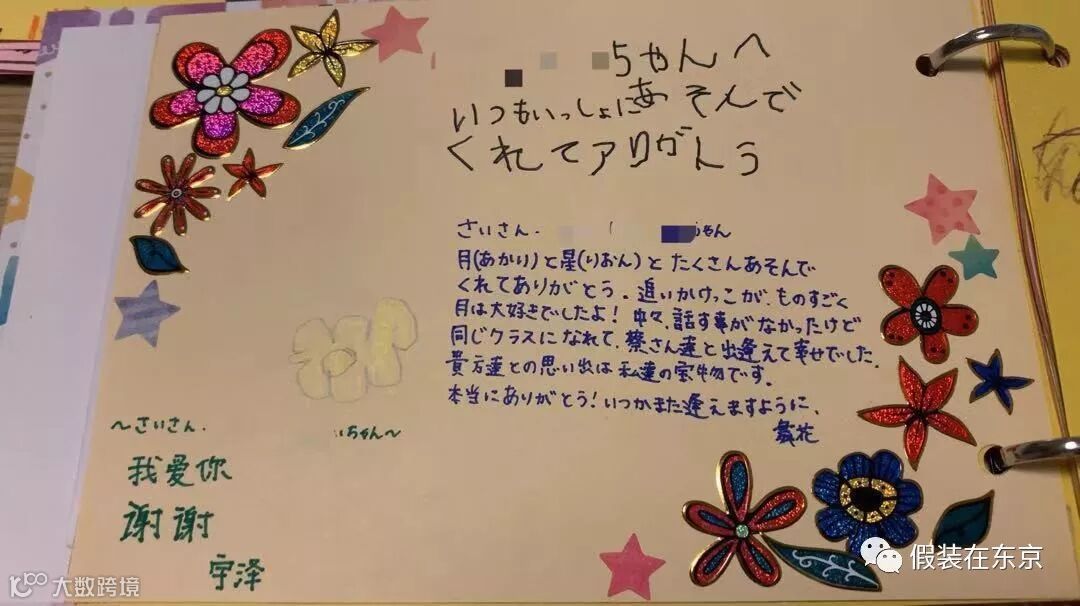 ちゃんへ
いつもいっしょにあそんで
くれてアリガトう
さいさん.
ちゃん
月(あかり)と星(りおん)とたくさんあそんで
くれてありがとう。追いかけっこが、ものすごく
月は大好きでしたよ!中々、話す事がなかったけど
同じクラスになれて、蔡さん達と出逢えて幸せでした。
貴方達との思い出は私達の宝物です。
本当にありがとう!いつかまた逢えますように、
花
～さいさん.
ちゃん～
我爱你
谢谢
宇泽
大数跨境
假装在东京